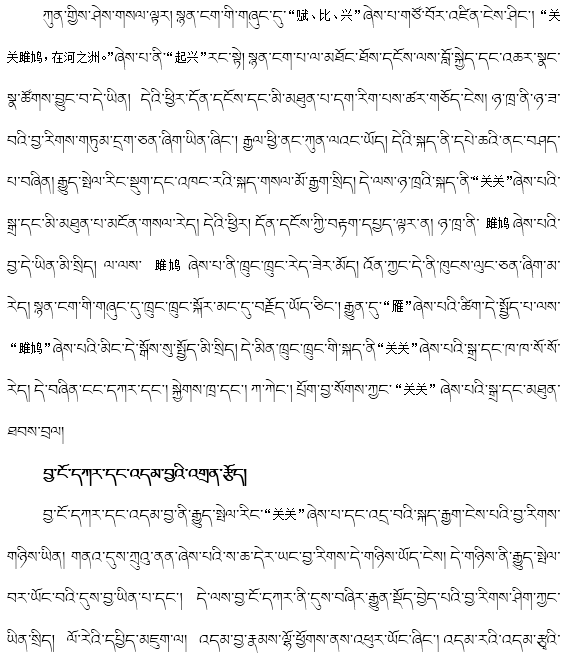 ཀུན་གྱིས་ཤེས་གསལ་ལྟར། སྙན་ངག་གི་གཞུང་དུ་“赋、比、兴”ཞེས་པ་གཙོ་བོར་འཛིན་ངེས་ཤིང་། “关
关雎鸠，在河之洲。”ཞེས་པ་ནི་“起兴”རང་སྟེ། སྙན་ངག་པ་ལ་མཐོང་ཐོས་དངོས་ལས་བློ་སྐྱེད་དང་འཆར་སྣང་
སྣ་ཚོགས་བྱུང་བ་དེ་ཡིན། དེའི་ཕྱིར་དོན་དངོས་དང་མི་མཐུན་པ་དག་རིག་པས་ཚར་གཅོད་ངེས། ཉ་ཁྲ་ནི་ཉ་ཟ་
བའི་བྱ་རིགས་གཏུམ་དྲག་ཅན་ཞིག་ཡིན་ཞིང་། རྒྱལ་ཕྱི་ནང་ཀུན་ལའང་ཡོད། དེའི་སྐད་ནི་དཔེ་ཆའི་ནང་བཤད་
པ་བཞིན། རྒྱུད་སྤེལ་རིང་སྡུག་དང་འཁང་རའི་སྐད་གསལ་མོ་རྒྱག་སྲིད། དེ་ལས་ཉ་ཁྲའི་སྐད་ནི་“关关”ཞེས་པའི་
སྒྲ་དང་མི་མཐུན་པ་མངོན་གསལ་རེད། དེའི་ཕྱིར། དོན་དངོས་ཀྱི་བརྟག་དཔྱད་ལྟར་ན། ཉ་ཁྲ་ནི་ 雎鸠 ཞེས་པའི་
བྱ་དེ་ཡིན་མི་སྲིད། ལ་ལས་ 雎鸠 ཞེས་པ་ནི་ཁྲུང་ཁྲུང་རེད་ཟེར་མོད། འོན་ཀྱང་དེ་ནི་ཁུངས་ལུང་ཅན་ཞིག་མ་
རེད། སྙན་ངག་གི་གཞུང་དུ་ཁྲུང་ཁྲུང་སྐོར་མང་དུ་བརྗོད་ཡོད་ཅིང་། རྒྱུན་དུ་“雁”ཞེས་པའི་ཚིག་དེ་སྤྱོད་པ་ལས་
“雎鸠”ཞེས་པའི་མིང་དེ་སྒོས་སུ་སྤྱོད་མི་སྲིད། དེ་མིན་ཁྲུང་ཁྲུང་གི་སྐད་ནི་“关关”ཞེས་པའི་སྒྲ་དང་ཁ་ཁ་སོ་སོ་
རེད། དེ་བཞིན་ངང་དཀར་དང་། སྐྱེགས་ཁྲ་དང་། ཀ་ཀེང་། ཕྲོག་བྱ་སོགས་ཀྱང་“关关” ཞེས་པའི་སྒྲ་དང་མཐུན་
ཐབས་བྲལ།
བྱ་ངོ་དཀར་དང་འདམ་བྱའི་འགྲན་རྩོད།
བྱ་ངོ་དཀར་དང་འདམ་བྱ་ནི་རྒྱུད་སྤེལ་རིང་“关关”ཞེས་པ་དང་འདྲ་བའི་སྐད་རྒྱག་ངེས་པའི་བྱ་རིགས་
གཉིས་ཡིན། གནའ་དུས་ཀྲུའུ་ནན་ཞེས་པའི་ས་ཆ་དེར་ཡང་བྱ་རིགས་དེ་གཉིས་ཡོད་ངེས། དེ་གཉིས་ནི་རྒྱུད་སྤེལ་
བར་ཡོང་བའི་དུས་བྱ་ཡིན་པ་དང་། དེ་ལས་བྱ་ངོ་དཀར་ནི་དུས་བཞིར་རྒྱུན་སྡོད་བྱེད་པའི་བྱ་རིགས་ཤིག་ཀྱང་
ཡིན་སྲིད། ལོ་རེའི་དཔྱིད་མཇུག་ལ། འདམ་བྱ་རྣམས་ལྷོ་ཕྱོགས་ནས་འཕུར་ཡོང་ཞིང་། འདམ་རའི་འདམ་རྩྭའི་